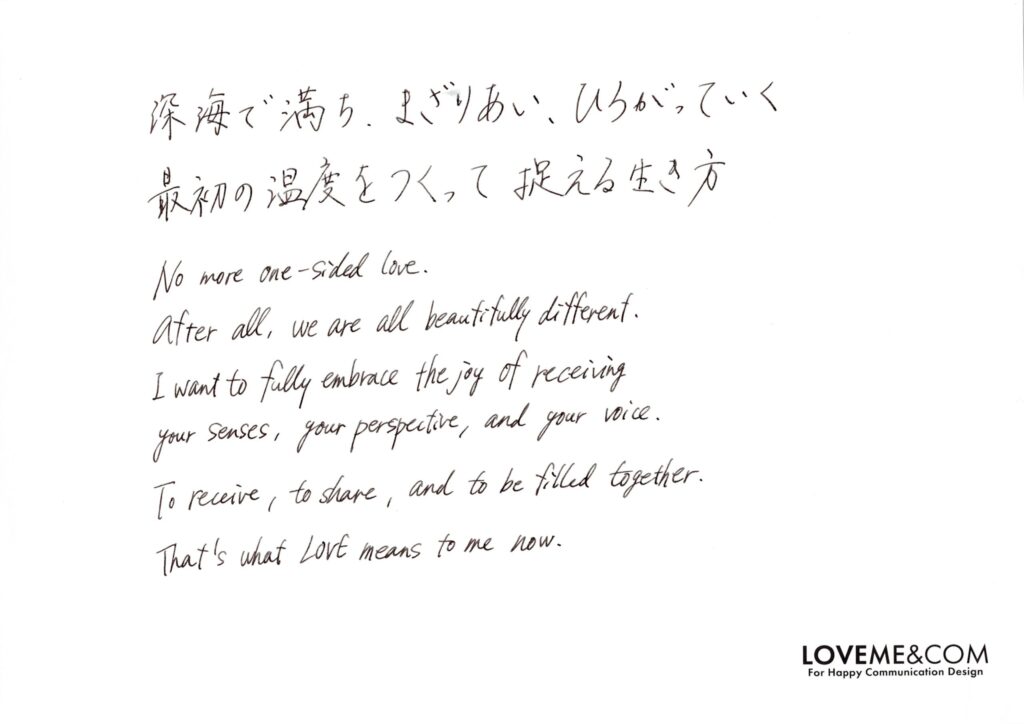 深海で満ち、まざりあい、ひろがっていく
最初の温度をつくって捉える生き方
No more one-sided love.
After all, we are all beautifully different.
I want to fully embrace the joy of receiving
your senses, your perspective, and your voice.
To receive, to share, and to be filled together.
That's what LOVE means to me now.
LOVEME&COM
For Happy Communication Design